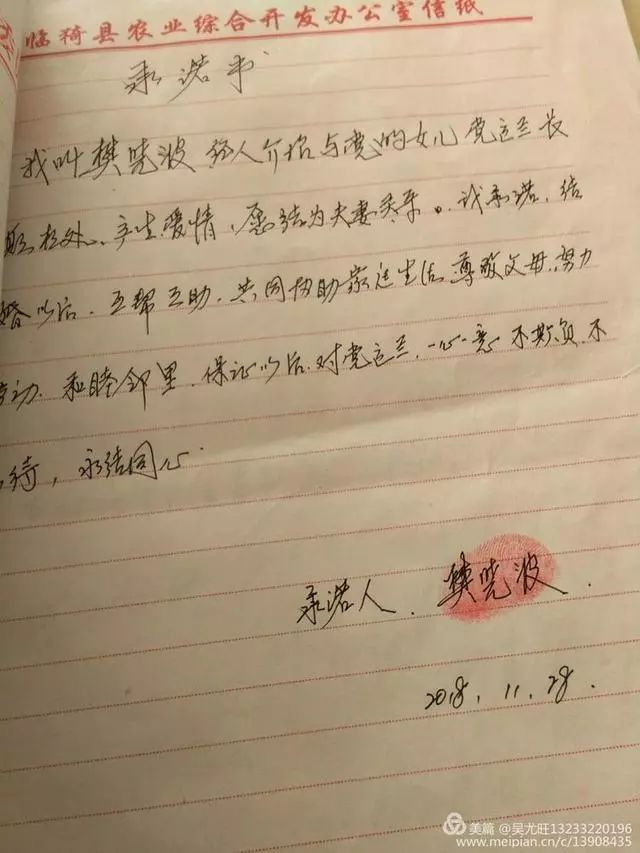 临猗县农业综合开发办公室信纸
承诺书
我叫樊晓波 经人介绍与党的女儿 党运兰长
相处、产生爱情,愿结为夫妻关系。我承诺,结
婚以后,互帮互助,共同协助家庭生活,尊敬父母,努力
动,和睦邻里,保证以后,对党运兰,一心一意,不欺负,不
待,永结同心
承诺人. 樊晓波.
2018. 11. 28.
美篇 @吴尤旺13233220196
www.meipian.cn/c/13908435